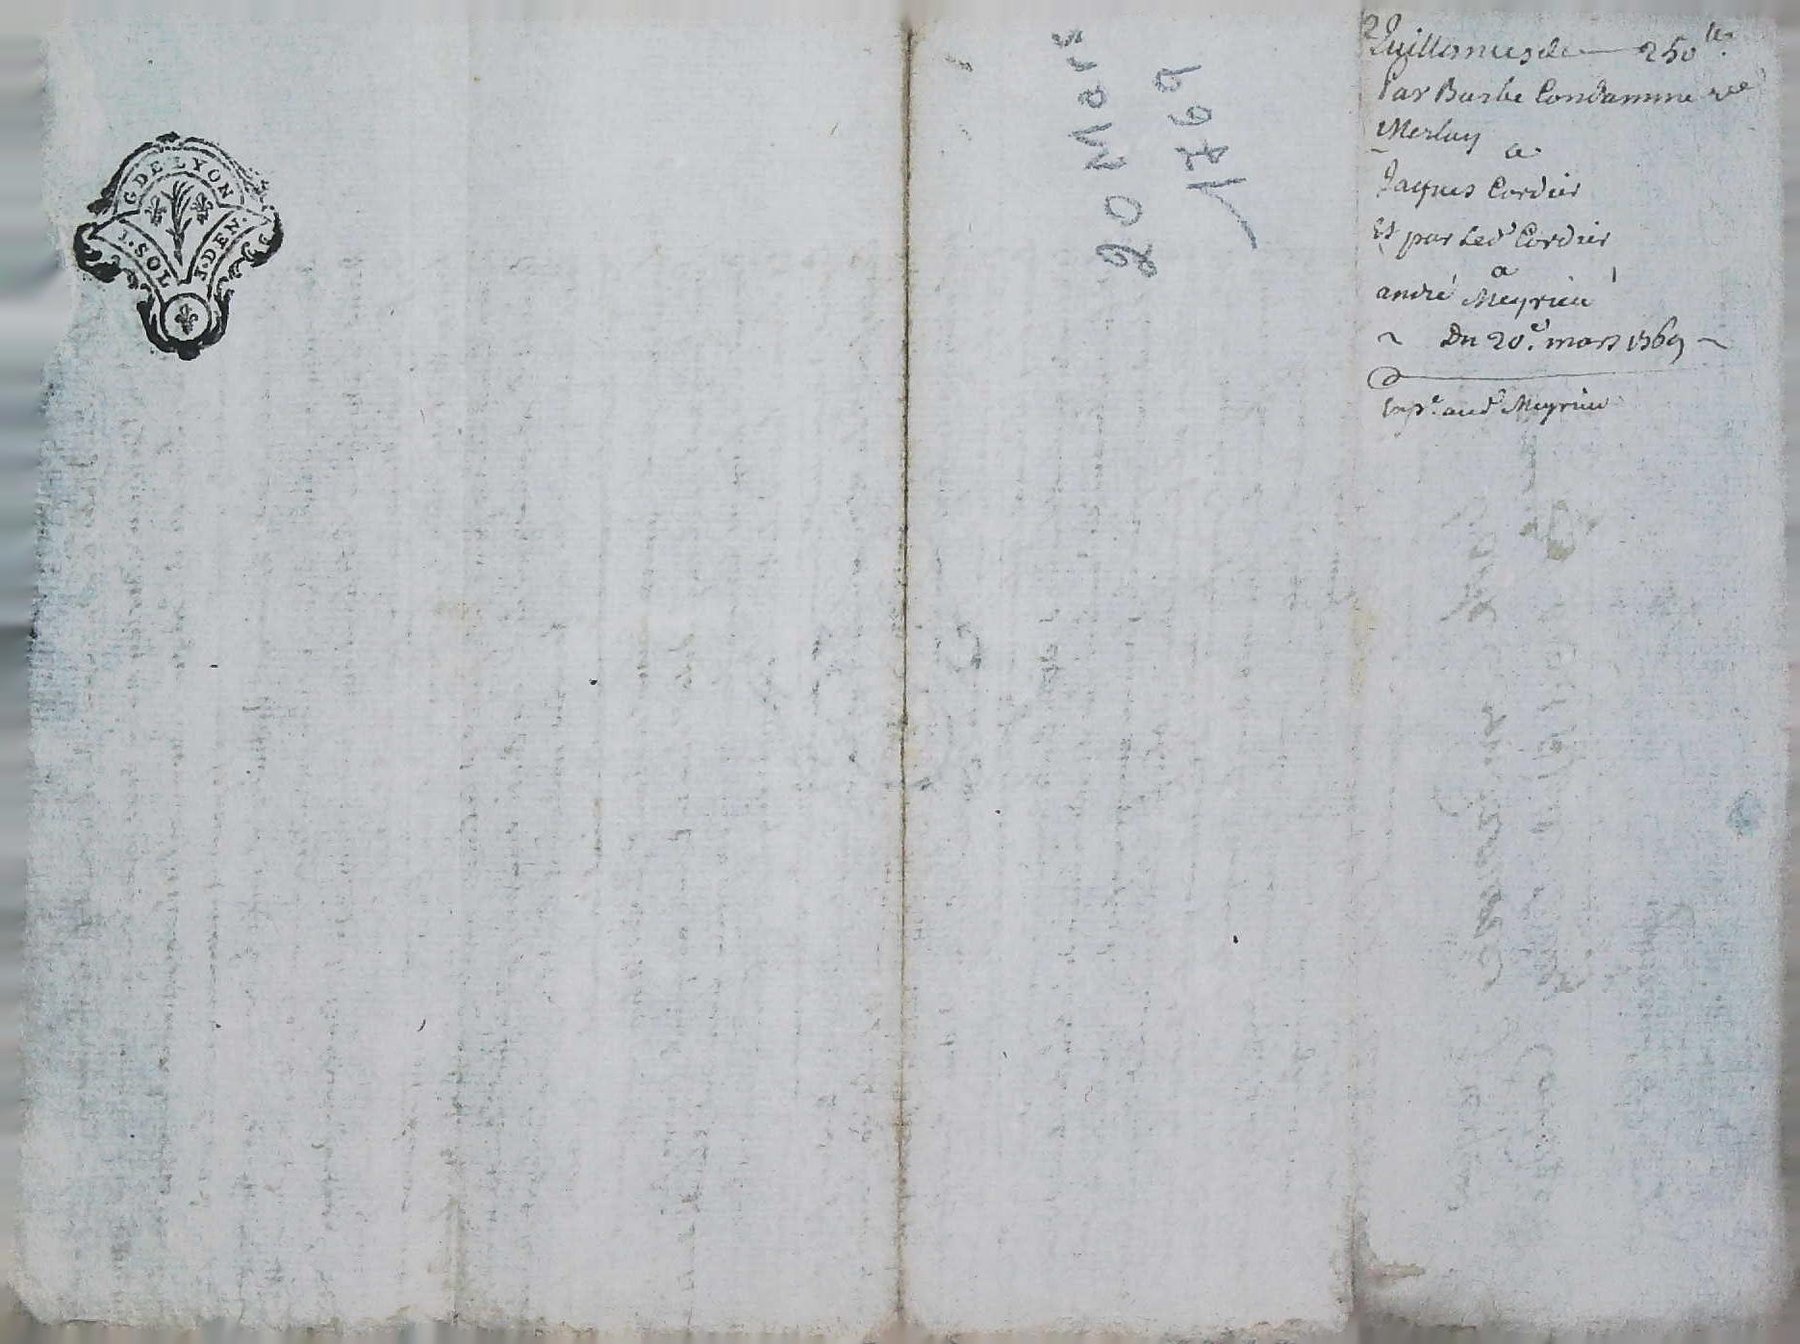 G DE LYON
1. SOL
4. DEN.
20 Mars
1769
Quittance de — 250 lt.
Par Barbe Condamine
Merlay
a
Jaques Cordier
Et par led. Cordier
a
andré Meyrieu
~ Du 20e. mars 1769 ~
Exp.e aud. Meyrieu